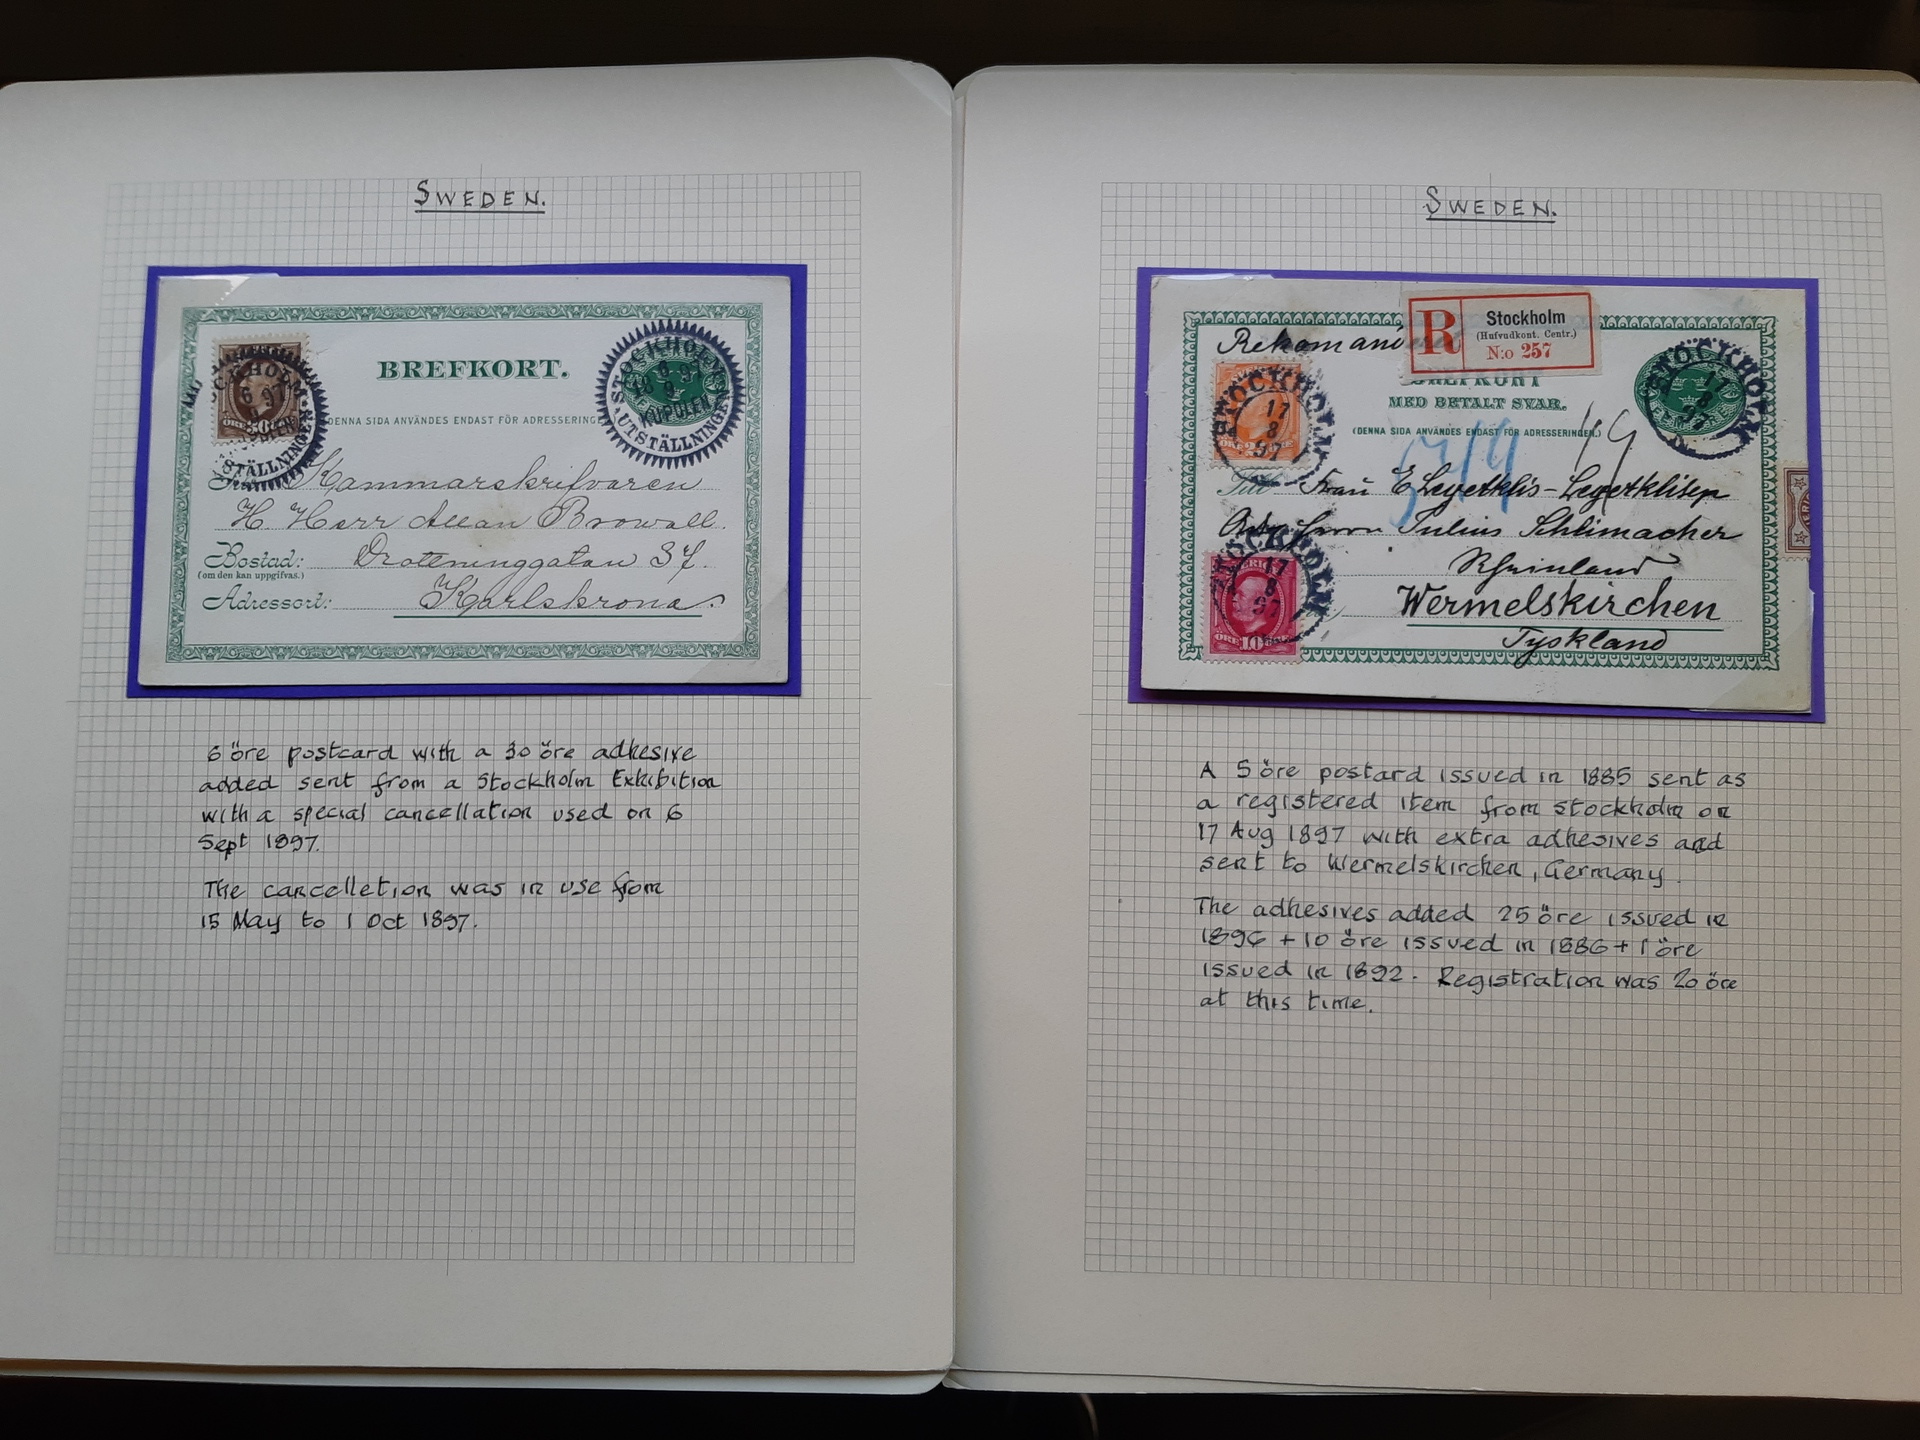 SWEDEN.
BREFKORT.
(DENNA SIDA ANVÄNDES ENDAST FÖR ADRESSERINGEN
STOCKHOLM
6 97
STÄLLNINGEN
ÖRE
STOCKHOLMS
6
18 9 97
KUPOLEN
UTSTÄLLNINGEN
Kammarskrifvaren
H. Herr Allan Browall.
Bostad: Drottninggatan 37.
(om den kan uppgifvas.)
Adressort: Karlskrona.
6 öre postcard with a 30 öre adhesive
added sent from a Stockholm Exhibition
with a special cancellation used on 6
Sept 1897.
The cancelletion was in use from
15 May to 1 Oct 1897.
SWEDEN.
R Stockholm
(Hufvudkont. Centr.)
N:o 257
BREFKORT
MED BETALT SVAR.
(DENNA SIDA ANVÄNDES ENDAST FÖR ADRESSERINGEN.)
STOCKHOLM
17
8
97
STOCKHOLM
17
8
Till Frau
Julius Schlimacher
Rheinland
Wermelskirchen
Tyskland
STOCKHOLM
17
8
97
ÖRE 10
A 5 öre postard issued in 1885 sent as
a registered item from Stockholm on
17 Aug 1897 with extra adhesives and
sent to Wermelskirchen, Germany.
The adhesives added 25 öre issued in
1896 + 10 öre issued in 1886 + 1 öre
issued in 1892. Registration was 20 öre
at this time.